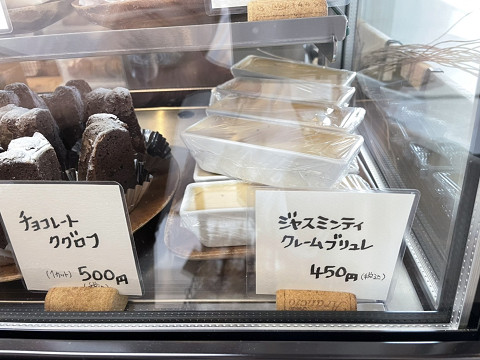 チョコレート
クグロフ
(1カット) 500円
(税込)
ジャスミンティ
クレームブリュレ
450円(税込)